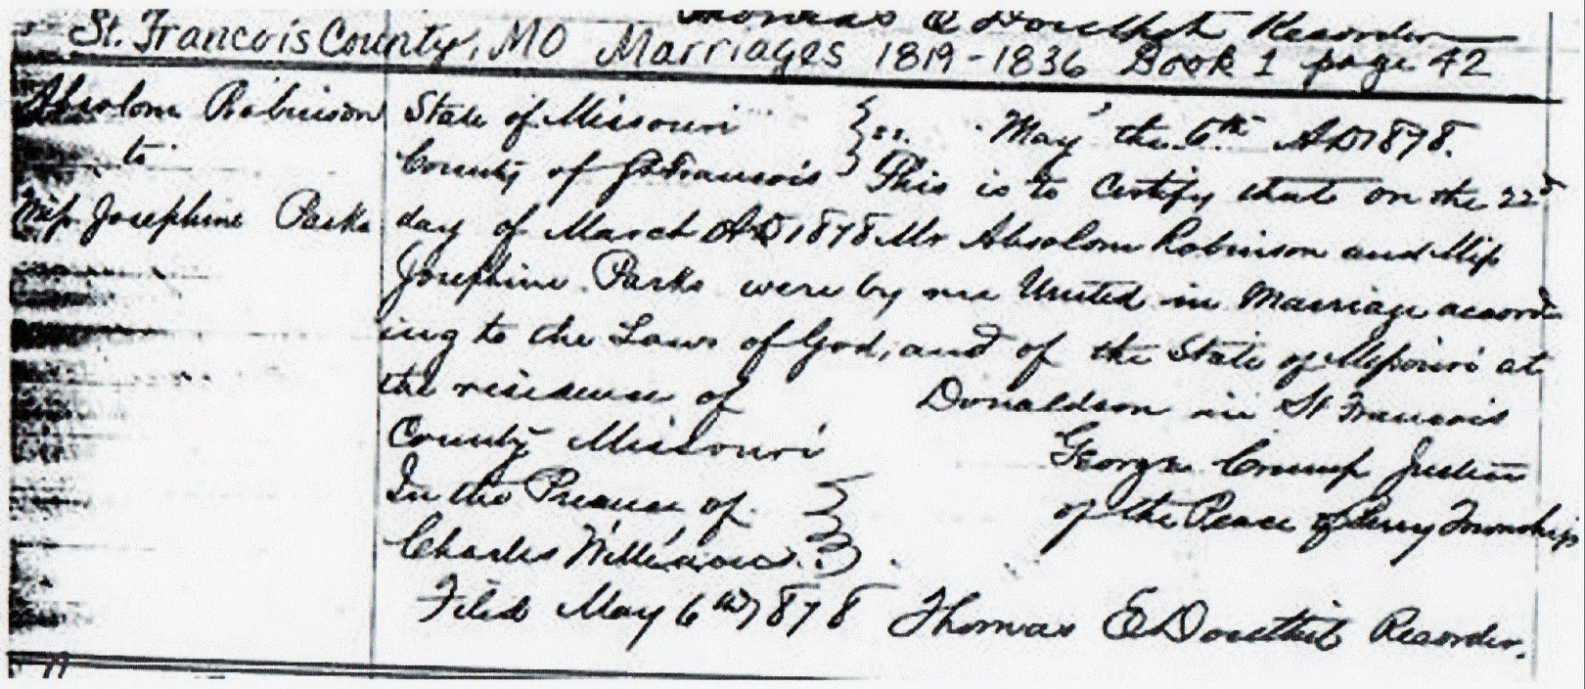 Thomas E Douthit Recorder
St. Francois County, MO Marriages 1819-1836 Book 1 page 42
Absolom Robinson
to
Miss Josephine Parks
State of Missouri } ss. May the 6th AD 1878.
County of St Francois } This is to Certify that on the 22d
day of March AD 1878 Mr Absolom Robinson and Miss
Josephine Parks were by me United in Marriage accord
ing to the Laws of God, and of the State of Missouri at
the residence of Donaldson in St Francois
County Missouri George Crump Justice
In the Presence of } of the Peace of Perry Township
Charles Williams }
Filed May 6th 1878 Thomas E Douthit Recorder.